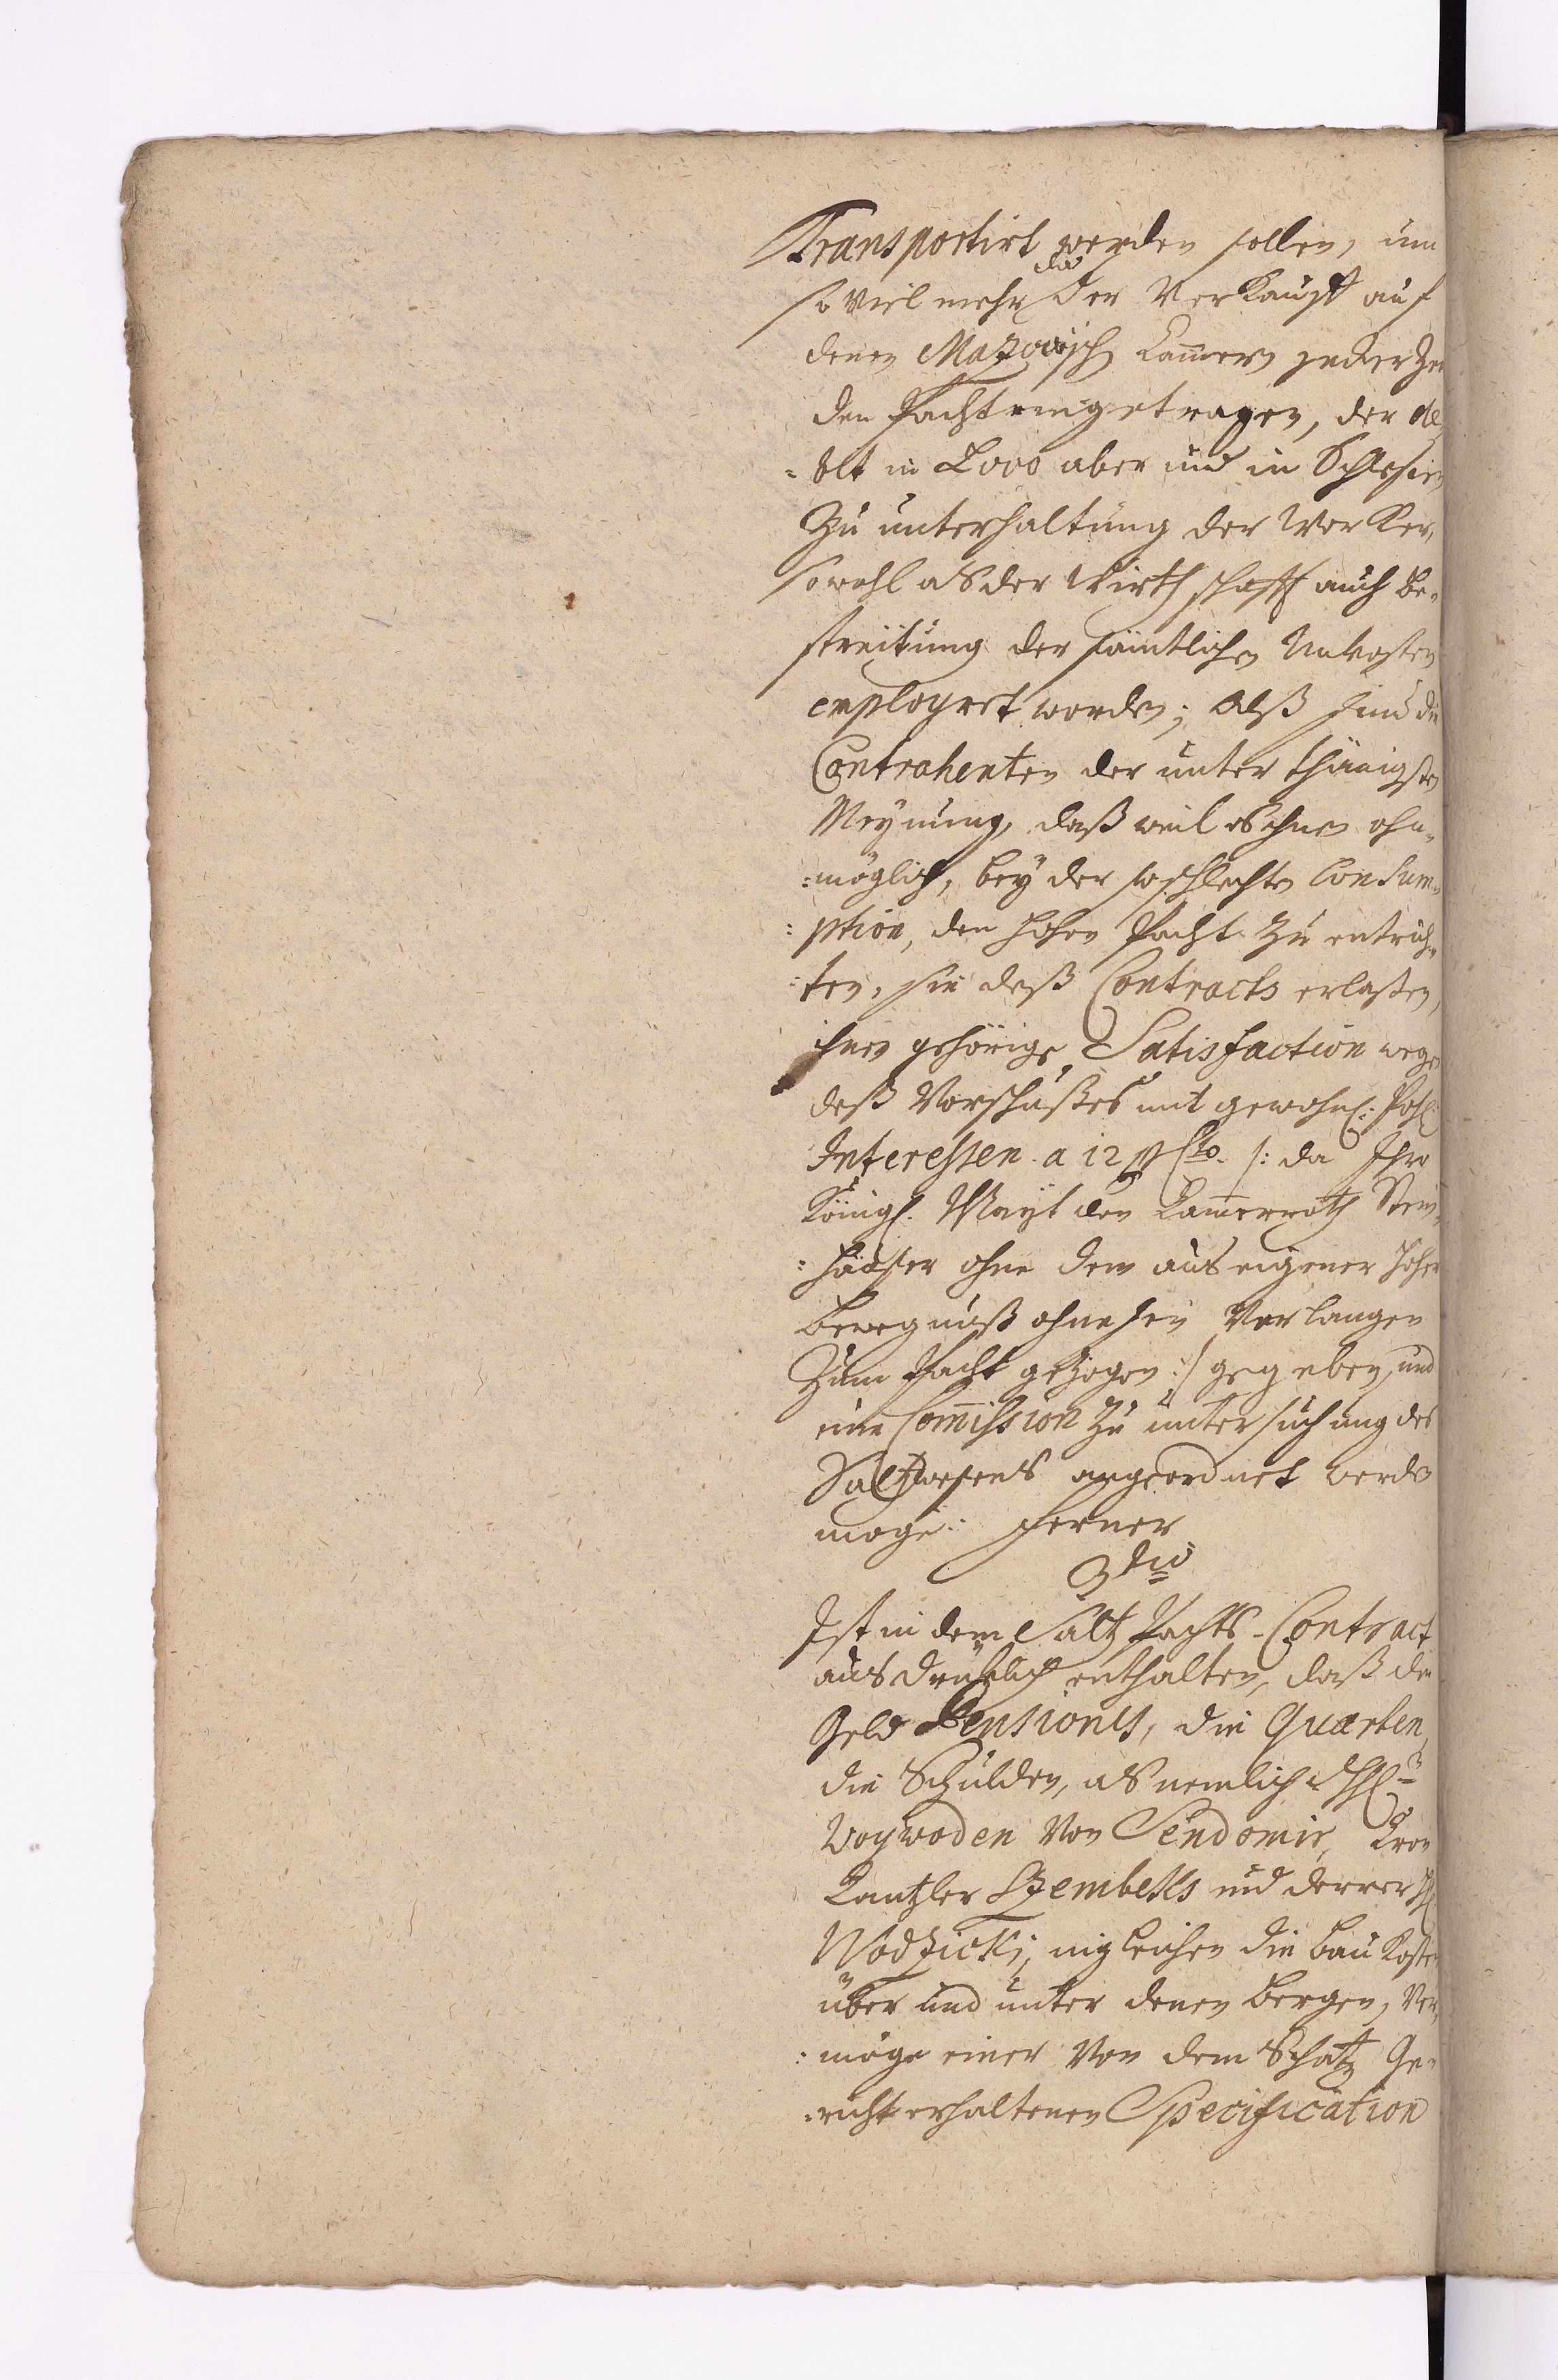 Transportirt werden sollen, um
so viel mehr da der Verkauff auf
denen Mazovisch Cammern jederZeit
den Pacht eingetragen, der de=
=bit in Loco aber und in Schlesien
Zu unterhaltung der Wercker,
sowohl als der Wirthschafft auch be=
streitung der sämtlichen Unkosten
employret worden; Alß sind die
Contrahenten der unterthänigsten
Meynung, daß weil es ihnen ohn=
=möglich, bey der so schlechten Consum=
=ption, den hohen Pacht Zu entrich=
=ten, sie deß Contracts erlaßen,
ihnen gehörige Satisfaction wegen
deß Vorschußes mit gewohnl: Pohl:
Interessen a 12 p Cto. /: da Ihro
Königl. Mayt den Cammerrath Stein=
=häuser ohne dem aus eigener hoher
bewegnuß ohne sein Verlangen
Zum Pacht gezogen :/ gegeben, und
eine Commission Zu untersuchung des
Saltzwesens angeordnet werden
moge. Ferner
3tio
Ist in dem Saltz Pachts-Contract
ausdrücklich enthalten, daß die
Geld Pensiones, die Quarten,
die Schulden, als nemlich
Woywoden Von Sendomir, Cron
Cantzler Szembeks und derer H
Wodzicki, ingleichen die bau Kosten
über und unter denen Bergen, Ver=
=möge einer Von dem Schatz Ge=
=richt erhaltenen Specification